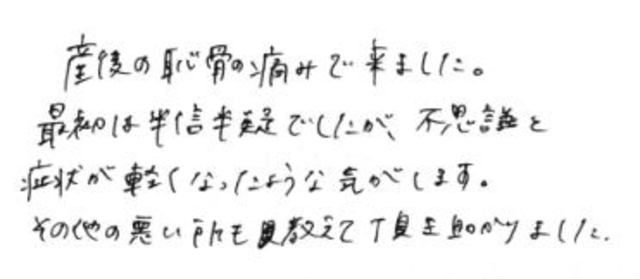 産後の恥骨の痛みで来ました。
最初は半信半疑でしたが、不思議と
症状が軽くなったような気がします。
その他の悪い所も教えて頂き助かりました.